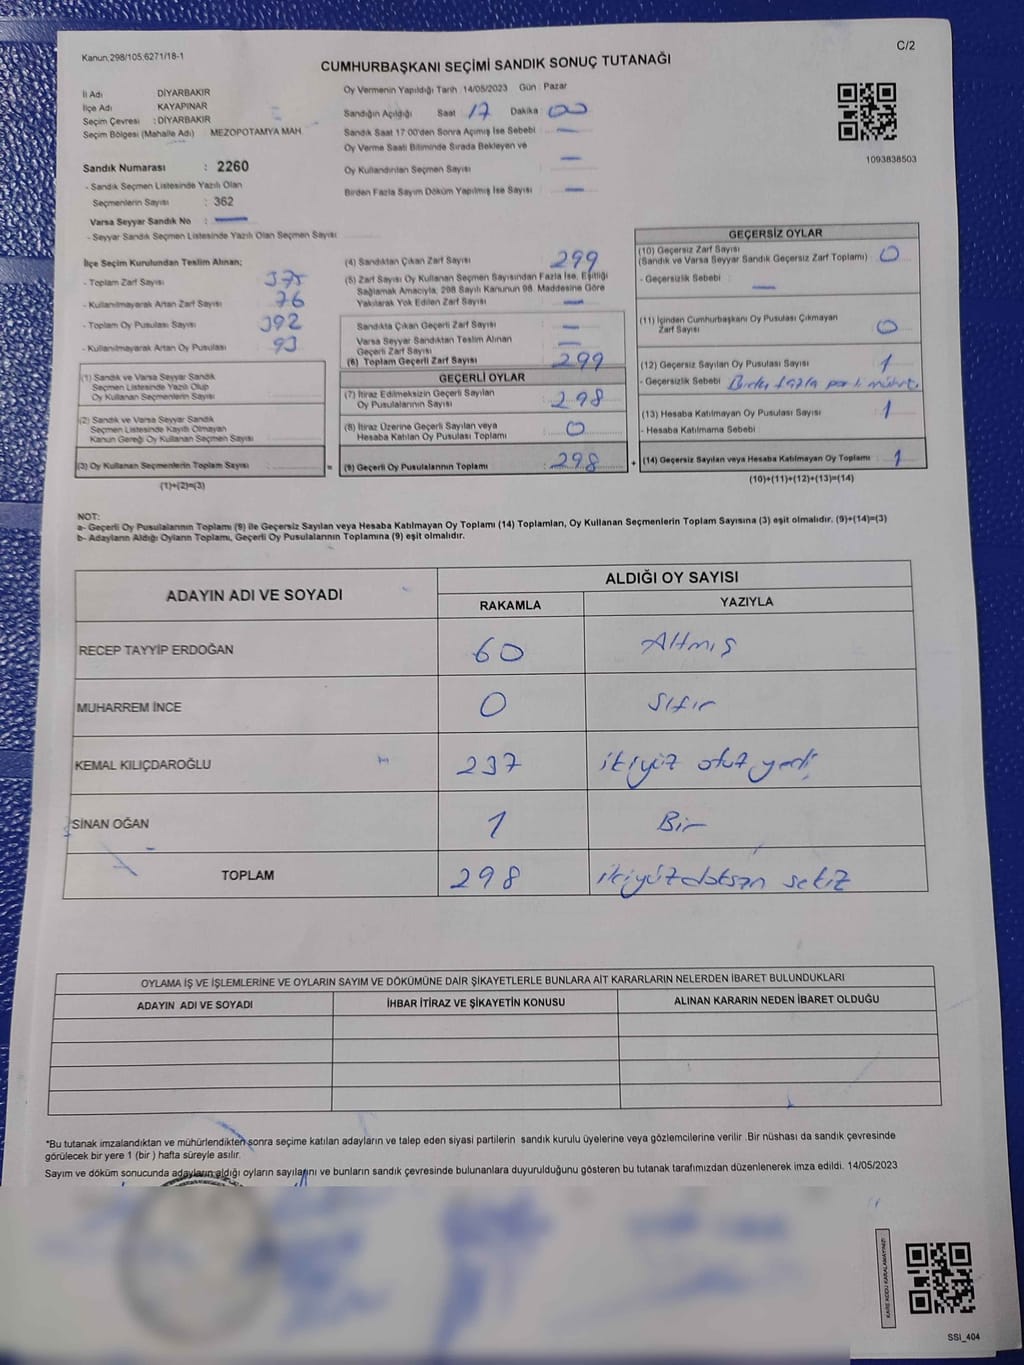 Kanun:298/105;6271/18-1
C/2
CUMHURBAŞKANI SEÇİMİ SANDIK SONUÇ TUTANAĞI
İl Adı DİYARBAKIR
İlçe Adı KAYAPINAR
Seçim Çevresi : DİYARBAKIR
Seçim Bölgesi (Mahalle Adı) MEZOPOTAMYA MAH.
Sandık Numarası : 2260
- Sandık Seçmen Listesinde Yazılı Olan
Seçmenlerin Sayısı : 362
Varsa Seyyar Sandık No : —
- Seyyar Sandık Seçmen Listesinde Yazılı Olan Seçmen Sayısı
Oy Vermenin Yapıldığı Tarih :14/05/2023 Gün : Pazar
Sandığın Açıldığı Saat 17 Dakika 00
Sandık Saat 17:00'den Sonra Açımış İse Sebebi : —
Oy Verme Saati Bitiminde Sırada Bekleyen ve
Oy Kullandırılan Seçmen Sayısı : —
Birden Fazla Sayım Döküm Yapılmış İse Sayısı : —
1093838503
İlçe Seçim Kurulundan Teslim Alınan;
- Toplam Zarf Sayısı : 375
- Kullanılmayarak Artan Zarf Sayısı : 76
- Toplam Oy Pusulası Sayısı : 392
- Kullanılmayarak Artan Oy Pusulası : 93
(1) Sandık ve Varsa Seyyar Sandık
Seçmen Listesinde Yazılı Olup
Oy Kullanan Seçmenlerin Sayısı :
(2) Sandık ve Varsa Seyyar Sandık
Seçmen Listesinde Kayıtlı Olmayan
Kanun Gereği Oy Kullanan Seçmen Sayısı :
(3) Oy Kullanan Seçmenlerin Toplam Sayısı : =
(1)+(2)=(3)
(4) Sandıktan Çıkan Zarf Sayısı : 299
(5) Zarf Sayısı Oy Kullanan Seçmen Sayısından Fazla İse, Eşitliği
Sağlamak Amacıyla, 298 Sayılı Kanunun 98. Maddesine Göre
Yakılarak Yok Edilen Zarf Sayısı : —
Sandıkta Çıkan Geçerli Zarf Sayısı : —
Varsa Seyyar Sandıktan Teslim Alınan
Geçerli Zarf Sayısı : —
(6) Toplam Geçerli Zarf Sayısı : 299
GEÇERLİ OYLAR
(7) İtiraz Edilmeksizin Geçerli Sayılan
Oy Pusulalarının Sayısı : 298
(8) İtiraz Üzerine Geçerli Sayılan veya
Hesaba Katılan Oy Pusulası Toplamı : 0
(9) Geçerli Oy Pusulalarının Toplamı : 298 +
GEÇERSİZ OYLAR
(10) Geçersiz Zarf Sayısı
(Sandık ve Varsa Seyyar Sandık Geçersiz Zarf Toplamı) : 0
- Geçersizlik Sebebi : —
(11) İçinden Cumhurbaşkanı Oy Pusulası Çıkmayan
Zarf Sayısı : 0
(12) Geçersiz Sayılan Oy Pusulası Sayısı : 1
- Geçersizlik Sebebi : fazla
(13) Hesaba Katılmayan Oy Pusulası Sayısı : 1
- Hesaba Katılmama Sebebi :
(14) Geçersiz Sayılan veya Hesaba Katılmayan Oy Toplamı : 1
(10)+(11)+(12)+(13)=(14)
NOT:
a- Geçerli Oy Pusulalarının Toplamı (9) ile Geçersiz Sayılan veya Hesaba Katılmayan Oy Toplamı (14) Toplamları, Oy Kullanan Seçmenlerin Toplam Sayısına (3) eşit olmalıdır. (9)+(14)=(3)
b- Adayların Aldığı Oyların Toplamı, Geçerli Oy Pusulalarının Toplamına (9) eşit olmalıdır.
ADAYIN ADI VE SOYADI ALDIĞI OY SAYISI
RAKAMLA YAZIYLA
RECEP TAYYİP ERDOĞAN 60 Altmış
MUHARREM İNCE 0 Sıfır
KEMAL KILIÇDAROĞLU 237 ikiyüz otuz yedi
SİNAN OĞAN 1 Bir
TOPLAM 298 ikiyüzdoksan sekiz
OYLAMA İŞ VE İŞLEMLERİNE VE OYLARIN SAYIM VE DÖKÜMÜNE DAİR ŞİKAYETLERLE BUNLARA AİT KARARLARIN NELERDEN İBARET BULUNDUKLARI
ADAYIN ADI VE SOYADI İHBAR İTİRAZ VE ŞİKAYETİN KONUSU ALINAN KARARIN NEDEN İBARET OLDUĞU
*Bu tutanak imzalandıktan ve mühürlendikten sonra seçime katılan adayların ve talep eden siyasi partilerin sandık kurulu üyelerine veya gözlemcilerine verilir .Bir nüshası da sandık çevresinde
görülecek bir yere 1 (bir ) hafta süreyle asılır.
Sayım ve döküm sonucunda adayların aldığı oyların sayılarını ve bunların sandık çevresinde bulunanlara duyurulduğunu gösteren bu tutanak tarafımızdan düzenlenerek imza edildi. 14/05/2023
KARE KODU KARALAMAYINIZ!
SSI_404